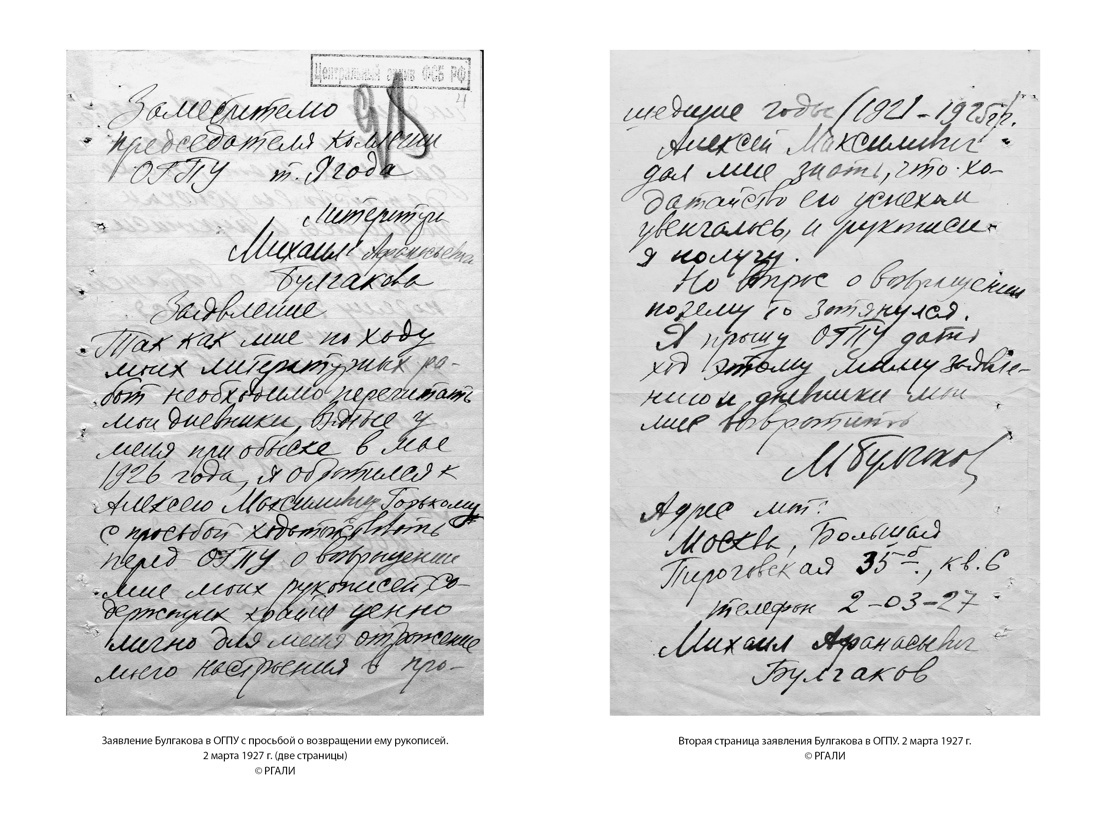 Центральный архив ФСБ РФ
4
Заместителю
председателя коллегии
ОГПУ т. Ягода
Литератора
Михаила Афанасьевича
Булгакова
Заявление.
Так как мне по ходу
моих литературных ра-
бот необходимо перечитать
мои дневники, взятые у
меня при обыске в мае
1926 года, я обратился к
Алексею Максимовичу Горькому
с просьбой ходатайствовать
перед ОГПУ о возвращении
мне моих рукописей со-
держащих крайне ценно
лично для меня отражение
моего настроения в про-
шедшие годы (1921-1925гг).
Алексей Максимович
дал мне знать, что хо-
датайство его успехом
увенчалось, и рукописи
я получу.
Но вопрос о возвращении
почему то затянулся.
Я прошу ОГПУ дать
ход этому моему заявле-
нию и дневники мои
мне возвратить
М Булгаков
Адрес мой:
Москва, Большая
Пироговская 35б., кв. 6
телефон 2-03-27
Михаил Афанасьевич
Булгаков
Заявление Булгакова в ОГПУ с просьбой о возвращении ему рукописей.
2 марта 1927 г. (две страницы)
© РГАЛИ
Вторая страница заявления Булгакова в ОГПУ. 2 марта 1927 г.
© РГАЛИ